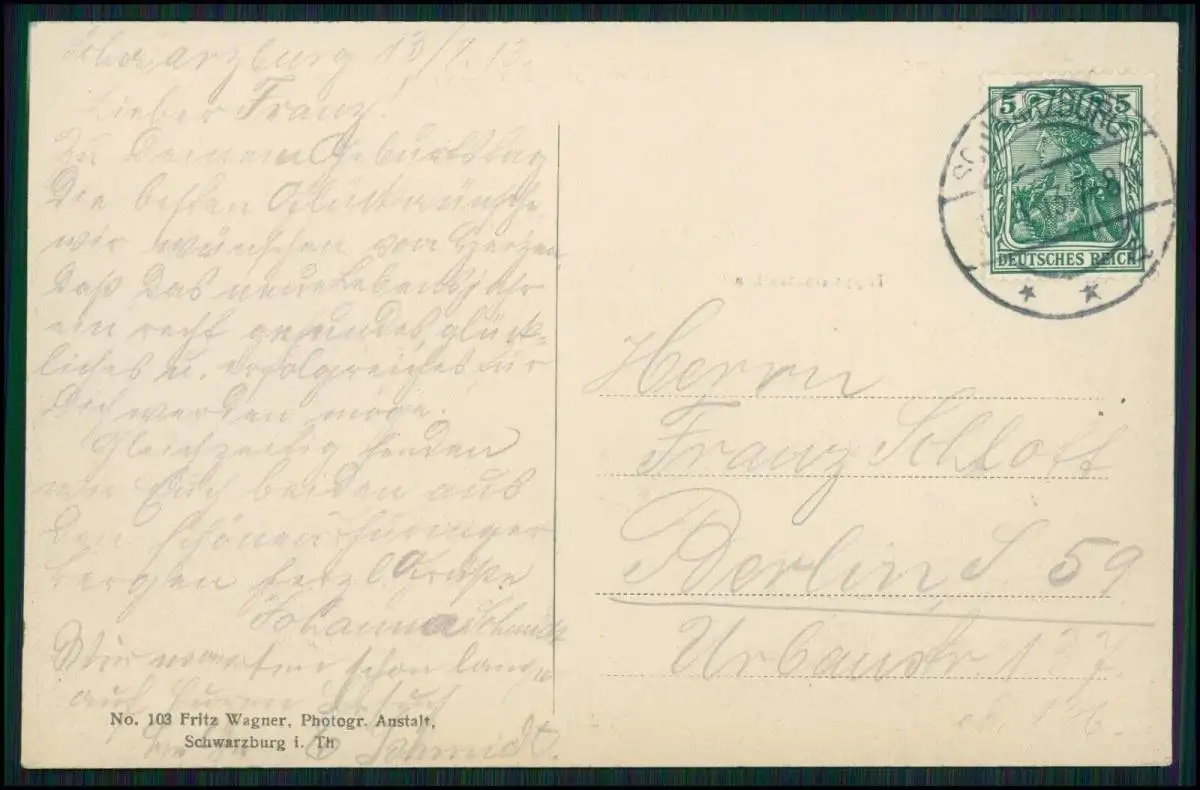 Schwarzburg 13/7. 13.
Lieber Franz!
Zu Deinem Geburtstag
die besten Glückwünsche
wir wünschen von Herzen
daß das neue Lebensjahr
ein recht gesundes, glück=
liches u. erfolgreiches für
Dich werden möge.
Gleichzeitig senden
wir Euch beiden aus
den schönen Thüringer
Bergen herzl Grüße
Johanna Schmidt
Wir warten schon lange
auf Euren Besuch
Schmidt.
No. 103 Fritz Wagner, Photogr. Anstalt,
Schwarzburg i. Th
5 5
DEUTSCHES REICH
SCHWARZBURG
Herrn
Franz Schlott
Berlin S 59
Urbanstr. 127.